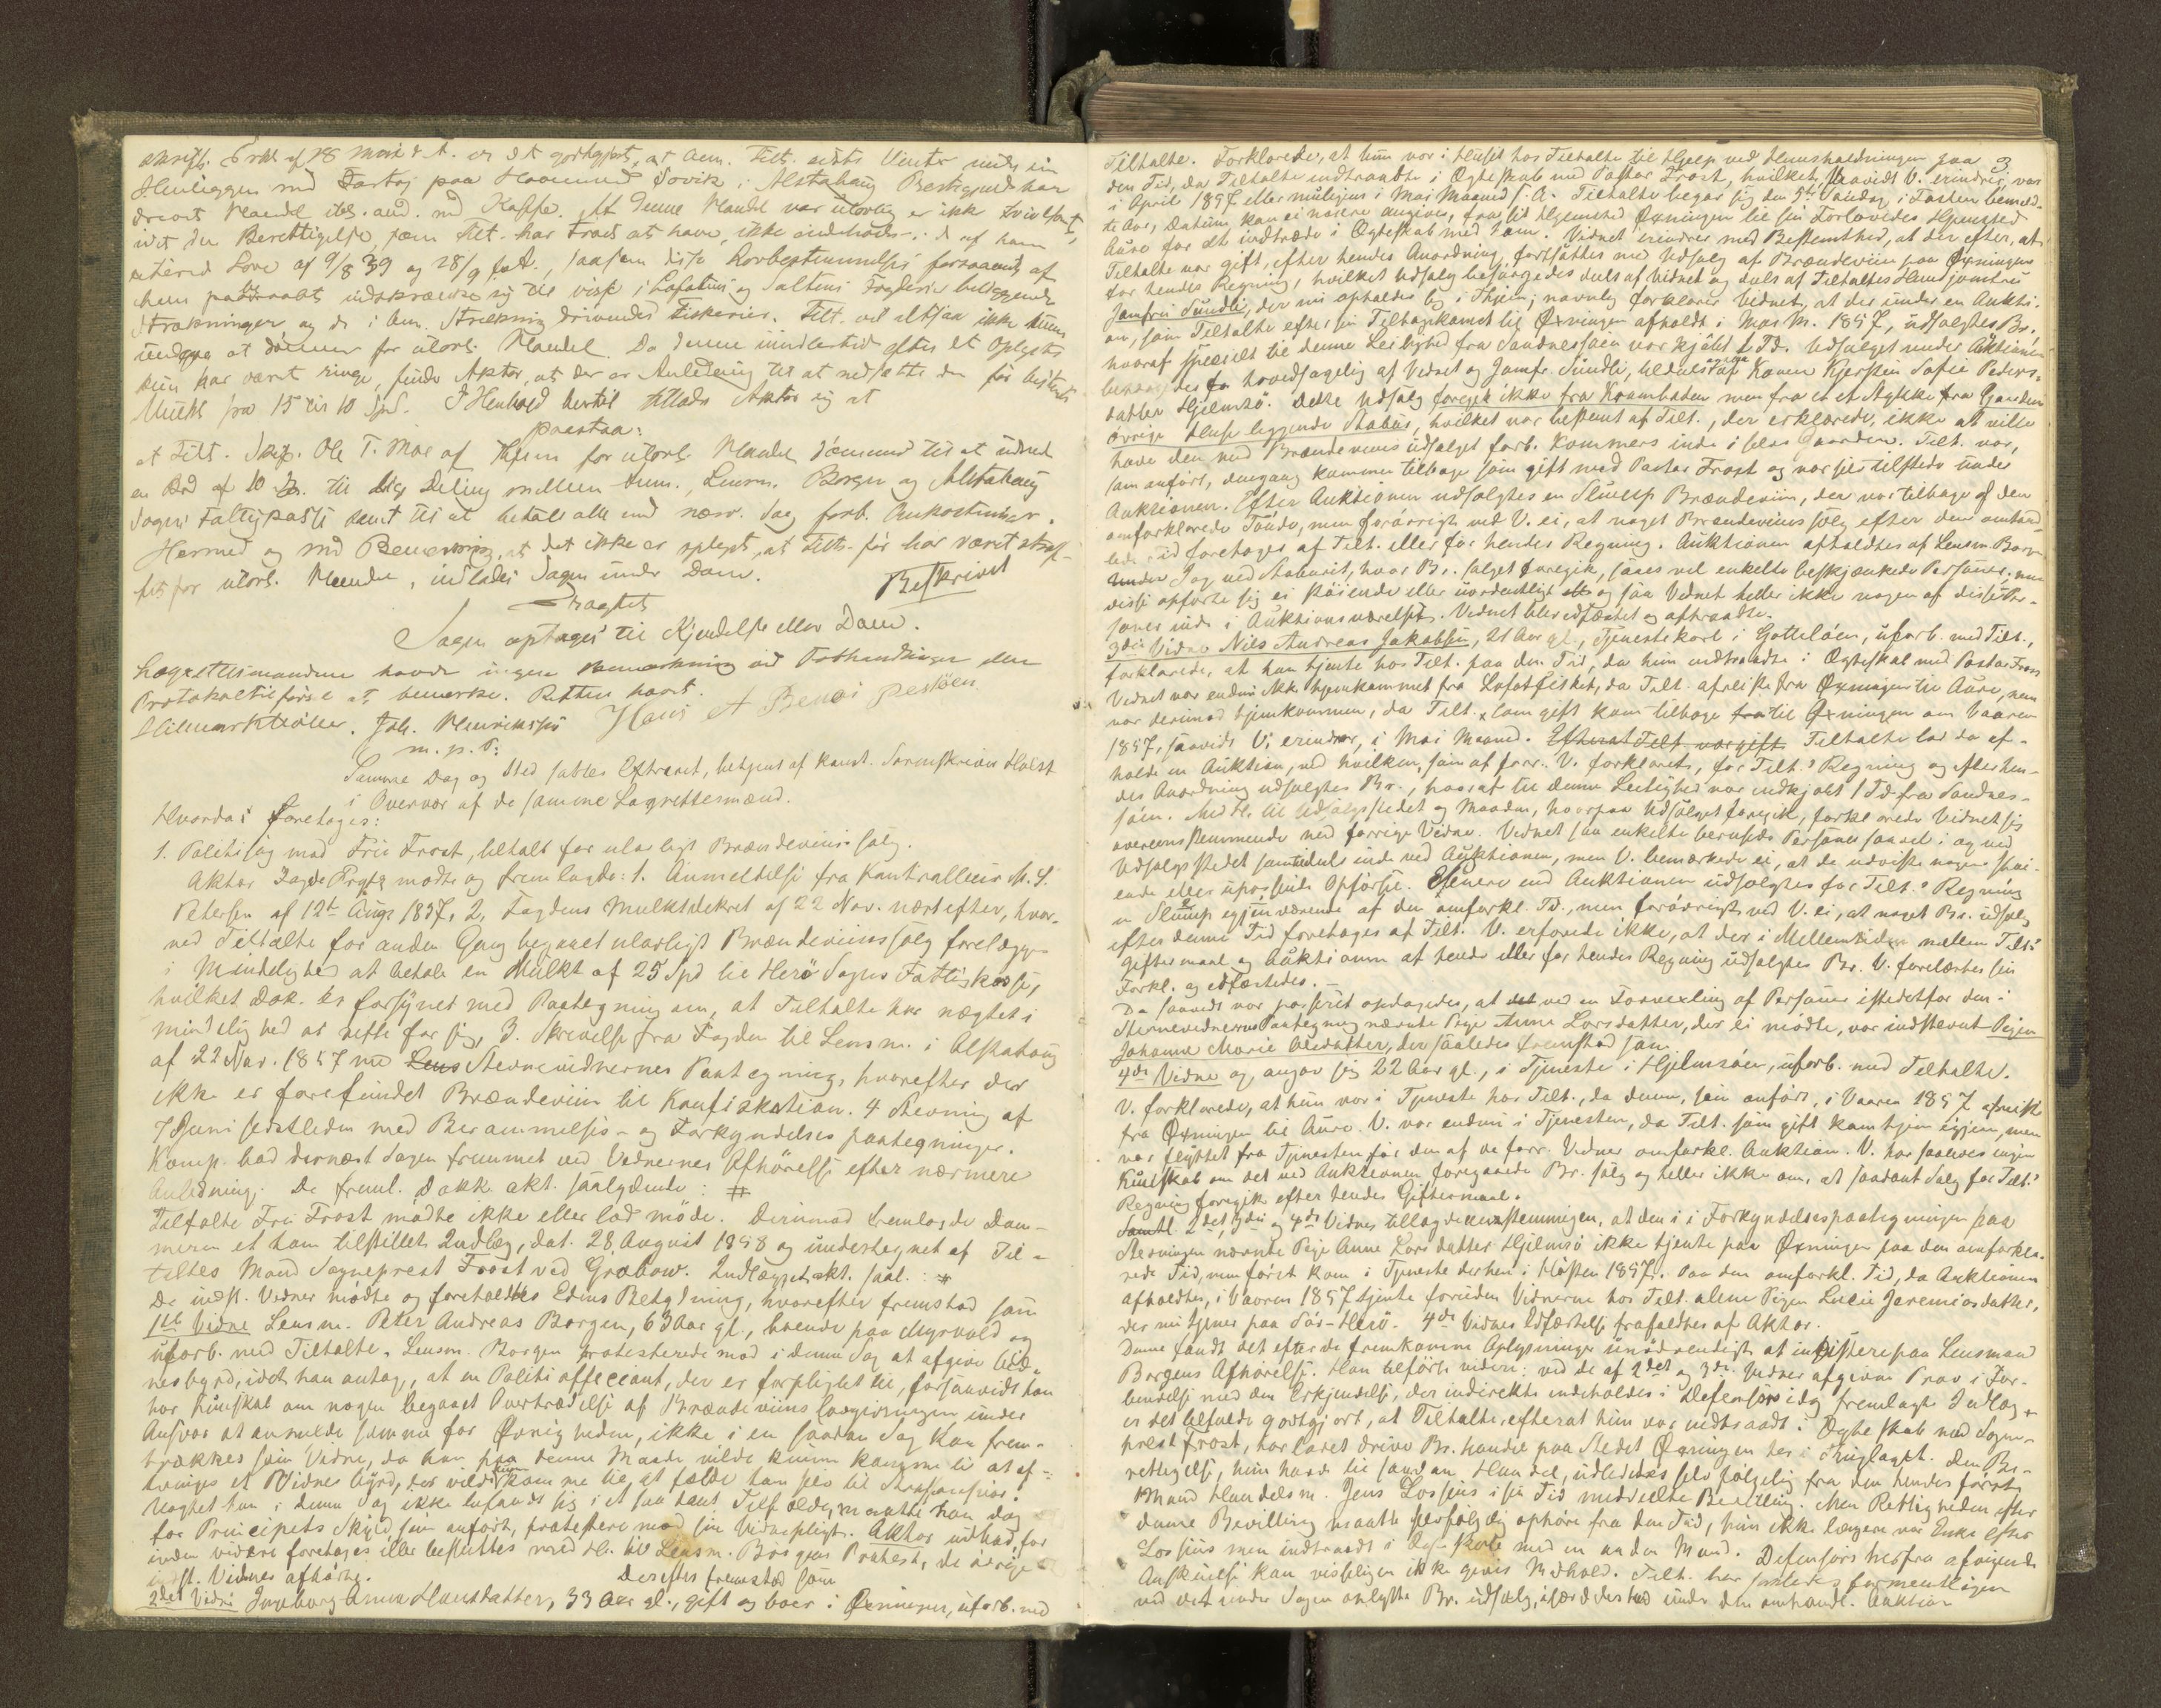 skrift. Erkl. af 18 Mai d. A. er det godtgjort, at Anm. Tilt. sidste Vinter under sin
Henliggen med Fartøj paa Sövik i Alstahaug Præstegjeld har
drevet Handel med Kaffe. At denne Handel var ulovlig er ikke tvivlsomt,
idet den Berettigelse, som Tilt. har troet at have, ikke indeholdes i de af ham
citered Love af 9/8 39 og 28/9 s. A., saasom disse Lovbestemmelser forsaavidt af
ham paaberaabt indskrænker sig til visse i Lofotens og Saltens Fogderier beliggende
Strækninger og de i dem drivendes Fiskerier. Tilt. vil altsaa ikke kunne
undgaa at dømmes for ulovl. Handel. Da denne imidlertid efter det Oplyste
kun har været ringe, finder Aktor, at der er Anledning til at nedsætte den før bestemte
Mulkt fra 15 til 10 Spd. I Henhold hertil tillader Aktor sig at
paastaa:
at Tilt. Ole T. Moe af for ulovl. Handel dømmes til at udrede
en Bod af 10 til lige Deling mellem Anm., Lensm. Borgen og Alstahaug
Sogns Fattigkasse samt til at betale alle med nærv. Sag forb. Omkostninger.
Hermed og med Bemærkning, at det ikke er oplyst, at Tilt. før har været straf-
fet for ulovl. Handel, indlades Sagen under Dom.
Beskrivet
Eragtet
Sagen optages til Kjendelse eller Dom.
Lagrettesmændene havde ingen Bemærkning ved Forhandlingen eller
Protokoltilførsel at bemærke. Retten hævet.
Joh. Henriksen Hans A
m. p. P.
Samme Dag og Sted sattes Extraret, betjent af konst. Sorenskriver Holst
i Overvær af de samme Lagrettesmænd.
Hvorda foretoges:
1. Politisag mod Fru Frost, tiltalt for ulovligt Brændeviinssalg.
Aktor mødte og fremlagde: 1. Anmeldelse fra Kontrolleur M. S.
Petersen af 12te Aug. 1857, 2, Fogdens Mulktdekret af 22 Nov. næstefter, hvor-
ved Tiltalte for anden Gang begaaet ulovligt Brændeviinssalg forelægges
i Mindelighed at betale en Mulkt af 25 Spd til Herö Sogns Fattigkasse,
hvilket Dok. er forsynet med Paategning om, at Tiltalte har nægtet i
mindelighed at rette for sig, 3. Skrivelse fra Fogden til Lensm. i Alstahaug
af 22 Nov. 1857 med Stevnevidnernes Paategning, hvorefter der
ikke er forefundet Brændeviin til Konfiskation. 4 Stevning af
7 Juni sidstleden med Berammelses- og Forkyndelses paategninger.
Komp. bad dernæst Sagen fremmet ved Vidnernes Afhörelse efter nærmere
Anledning. De freml. Dokk. akt. saalydende: #
Tiltalte Fru Frost mødte ikke eller lod møde. Derimod fremlagde Dom-
meren et ham tilstillet Indlæg, dat. 28 August 1858 og undertegnet af Til-
taltes Mand Sogneprest Frost ved Grabow. Indlægget akt. saal.: #
De indst. Vidner mødte og foreholdtes Edens Betydning, hvorefter fremstod som
1ste Vidne Lensm. Peter Andreas Borgen, 63 Aar gl., boende paa Myrvold og
uforb. med Tiltalte. Lensm. Borgen protesterede mod i denne Sag at afgive Vid-
nesbyrd, idet han antog, at en Politiofficiant, der er forpligtet til, forsaavidt han
har Kundskab om nogen begaaet Overtrædelse af Brændeviins lovgivningen under
Ansvar at anmelde samme for Øvrigheden, ikke i en saadan Sag kan frem-
trækkes som Vidne, da han paa denne Maade vilde kunne komme til at af-
tvinges et Vidnesbyrd, der vilde kunne komme til at fælde ham selv til Strafansvar.
Uagtet han i denne Sag ikke befandt sig i et saadant Tilfælde, maatte han dog
for Principets Skyld som anført, protestere mod sin Vidnepligt. Aktor indbød, for
inden videre foretages eller besluttes med H. til Lensm. Borgens Protest, de øvrige
indst. Vidner afhørte. Derefter fremstod som
2det Vidne Ingeborg Anna Hansdatter, 33 Aar gl., gift og boer i Øxningen, uforb. med
3
Tiltalte. Forklarede, at hun var i Huset hos Tiltalte til Hjelp ved Huusholdningen paa
den Tid, da Tiltalte indtraadte i Ægteskab med Pastor Frost, hvilket, saavidt V. erindrer, var
i April 1857 eller muligens i Mai Maaned s. A. Tiltalte begav sig den 5te Søndag i Fasten bemeld-
te Aar, Datum kan ei nøiere angives, fra sit Hjemsted Øxningen til sin Forlovedes Hjemsted
Aure for at indtræde i Ægteskab med ham. Vidnet erindrer med Bestemthed, at der efter, at
Tiltalte var gift, efter hendes Anordning, fortsattes med Udsalg af Brændeviin paa Øxningen
for hendes Regning, hvilket Udsalg besørgedes dels af Vidnet og dels af Tiltaltes Huusjomfru
Jomfru Sundli, der nu opholdes sig i Thjem; navnlig forklarer Vidnet, at der under en Aukti-
on, som Tiltalte efter sin Tilbagekomst til Øxningen afholdt i Mai M. 1857, udsolgtes Br.,
hvoraf specielt til denne Leilighed fra Sandnessøen var kjøbt 1 Td. Udsalget under Auktionen
besørgedes hovedsagelig af Vidnet og Jomfr. Sundli, tildels ogsaa af Konen Kjersten Sofie Peders-
datter Hjelmsö. Dette Udsalg foregik ikke fra Kramboden men fra et et Stykke fra Gaardens
øvrige Huse liggende Stabur, hvilket var bestemt af Tilt., der erklærede, ikke at ville
have den med Brændeviins udsalget forb. Kommers inde i selve Gaarden. Tilt. var,
som anført, dengang kommen tilbage som gift med Pastor Frost og var selv tilstede under
Auktionen. Efter Auktionen udsolgtes en Slump Brændeviin, der var tilbage af den
omforklarede Tønde, men forøvrigt ved V. ei, at noget Brændeviinssalg efter den omhand-
lede Tid foretoges af Tilt. eller for hendes Regning. Auktionen afholdtes af Lensm. Borgen
ved Staburet, hvor Br. salget foregik, saaes vel enkelte beskjænkede Personer, men
disse opførte sig ei støiende eller uordentligt og saa Vidnet heller ikke nogen af disse Per-
soner inde i Auktionsværelset. Vidnet blev edfæstet og aftraadte.
3die Vidne Nils Andreas Jakobsen, 21 Aar gl., Tjenestekarl i Gotteløen, uforb. med Tilt.,
forklarede, at han tjente hos Tilt. paa den Tid, da hun indtraadte i Ægteskab med Pastor Frost
Vidnet var endnu ikke hjemkommet fra Lofotfisket, da Tilt. afreiste fra Øxningen til Aure, men
var derimod hjemkommen, da Tilt. som gift kom tilbage til Øxningen om Vaaren
1857, saavidt V. erindrer, i Mai Maaned. Efterat Tilt. var gift Tiltalte lod da af-
holde en Auktion, ved hvilken, som af forr. V. forklaret, for Tilt.s Regning og efter hen-
des Anordning udsolgtes Br., hvoraf til denne Leilighed var indkjøbt 1 Td. fra Sandnes-
søen. Med H. til Udsalgsstedet og Maaden, hvorpaa Udsalget foregik, forklarede Vidnet sig
overeensstemmende med forrige Vidne. Vidnet saa enkelte berusede Personer saavel i og ved
Udsalgsstedet samt tildels inde ved Auktionen, men V. bemærkede ei, at de udviste nogen støi-
ende eller upassende Opførsel. Senere end Auktionen udsolgtes for Tilt.s Regning
en Slump igjenværende af den omforkl. Td., men forøvrigt ved V. ei, at noget Br. udsalg
efter denne Tid foretoges af Tilt. V. erfarede ikke, at der i Mellemtiden mellem Tilt.s
Giftermaal og Auktionen af hende eller for hendes Regning udsolgtes Br. V. forelæstes sin
Forkl. og edfæstedes. —
Da saavidt var passeret opdagedes, at det ved en Forvexling af Personer istedetfor den i
Stevnevidnernes Paategning nævnte Pige Anne Larsdatter, der ei mødte, var indstevnt Pigen
Johanna Marie Olsdatter, der saaledes fremstod som
4de Vidne og angav sig 22 Aar gl., i Tjeneste i Hjelmsøen, uforb. med Tiltalte.
V. forklarede, at hun var i Tjeneste hos Tilt., da denne, som anført, i Vaaren 1857 afreiste
fra Øxningen til Aure. V. var endnu i Tjenesten, da Tilt. som gift kom hjem igjen, men
var flyttet fra Tjenesten før den af de forr. Vidner omforkl. Auktion. V. har saaledes ingen
Kundskab om det ved Auktionen foregaaede Br. salg og heller ikke om, at saadant Salg for Tilt.s
Regning foregik efter hendes Giftermaal.
Samtl. 2det, 3die og 4de Vidner tillagde eenstemmigen, at den i Forkyndelsespaategningen paa
Stevningen nævnte Pige Anne Larsdatter Hjelmsö ikke tjente paa Øxningen paa den omforkla-
rede Tid, men først kom i Tjeneste derhen i Høsten 1857. Paa den omforkl. Tid, da Auktionen
afholdtes, i Vaaren 1857 tjente foruden Vidnerne hos Tilt. alene Pigen Lucie Jeremiasdatter,
der nu tjener paa Sör-Herö. 4de Vidnes Edfæstelse frafaldtes af Aktor.
Denne fandt det efter de fremkomne Oplysninger unødvendigt at insistere paa Lensmand
Borgens Afhørelse. Han tilførte videre: ved de af 2det og 3die Vidner afgivne Prov i For-
bindelse med den Erkjendelse, der indirekte indeholdes i Defensors idag fremlagte Indlæg
er det tilfulde godtgjort, at Tiltalte, efterat hun var indtraadt i Ægteskab med Sogne-
prest Frost, har ladet drive Br. handel paa Stedet Øxningen her i Thinglaget. Den Be-
rettigelse, hun havde til saadan Handel, udledetes selvfølgelig fra den hendes første
Mand Handelsm. Jens Lossius i sin Tid meddeelte Bevilling. Men Rettigheden efter
denne Bevilling maatte selvfølgelig ophøre fra den Tid, hun ikke længere var Enke efter
Lossius men indtraadt i Ægteskab med en anden Mand. Defensors herfra afvigende
Anskuelse kan visseligen ikke gives Medhold. Tilt. har saaledes formentligen
ved det under Sagen oplyste Br. udsalg, især det under den omhandl. Auktion